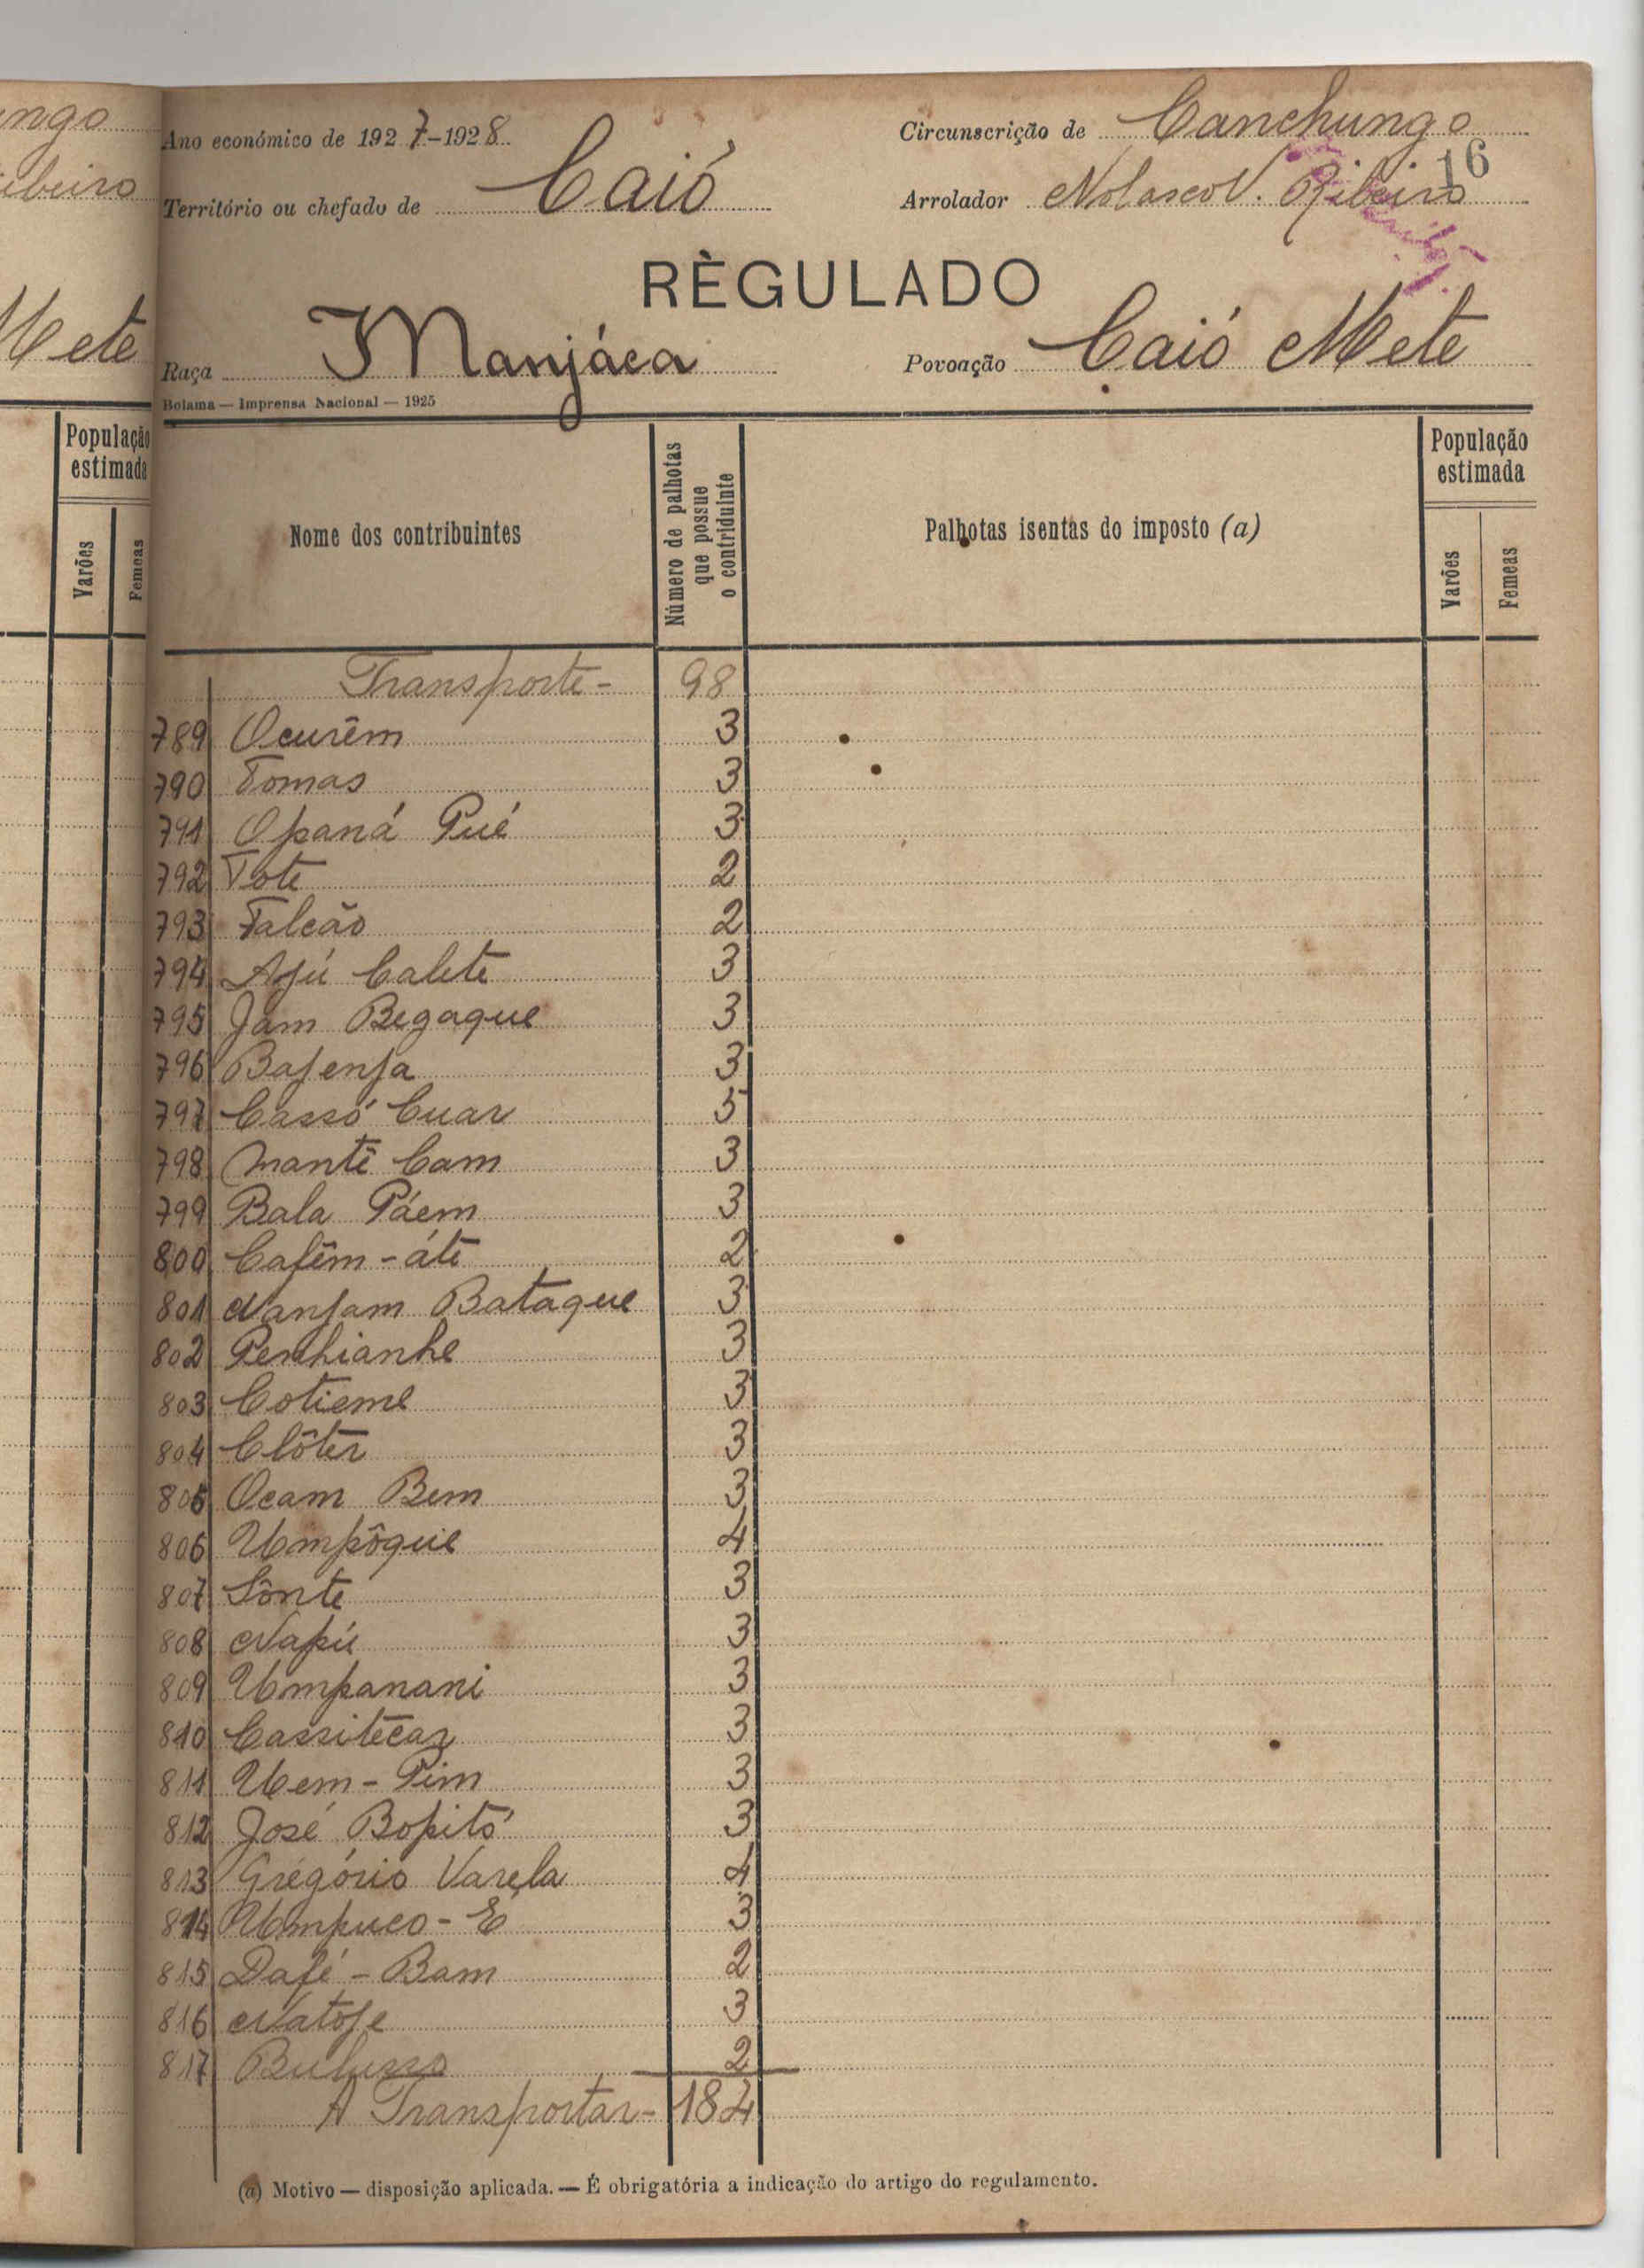 ngo
ibeiro
Mete
População
estimada
Varões
Femeas
Ano económico de 1927-1928
Circunscrição de Canchungo
16
Território ou chefado de Caió
Arrolador Nolasco V. Ribeiro
RÈGULADO
Raça Manjáca
Povoação Caió Mete
Bolama — Imprensa Nacional — 1925
Nome dos contribuintes
Número de palhotas que possue o contriduinte
Palhotas isentas do imposto (a)
População estimada
Varões
Femeas
Transporte- 98
789 Ocurêm 3
790 Tomas 3
791 Opaná Pué 3
792 Tote 2
793 Falcão 2
794 Ajú Calete 3
795 Jam Begaque 3
796 Bajenja 3
797 Cassó Cuar 5
798 Mantê Cam 3
799 Bala Páem 3
800 Cafêm-áte 2
801 Nanjam Bataque 3
802 Penhianhe 3
803 Cotieme 3
804 Clôter 3
805 Ocam Bem 3
806 Umpôque 4
807 Sônte 3
808 Napú 3
809 Umpanani 3
810 Cassitecar 3
811 Uem-Pim 3
812 José Bopitó 3
813 Gregório Varela 4
814 Umpuco-E 3
815 Dafé-Bam 2
816 Natoje 3
817 Bulusso 2
A Transportar- 184
(a) Motivo — disposição aplicada. — É obrigatória a indicação do artigo do regulamento.